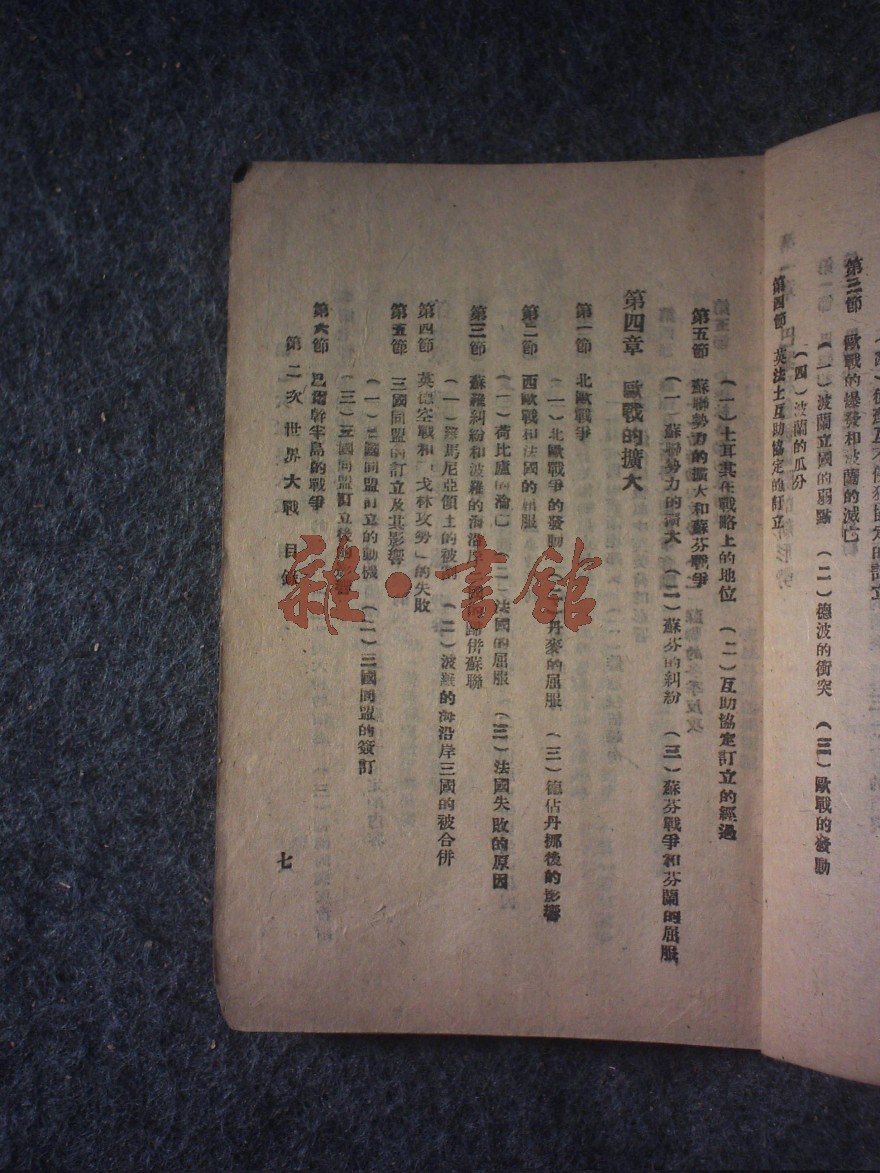 第三節　歐戰的爆發和波蘭的滅亡
（一）波蘭立國的弱點　（二）德波的衝突　（三）歐戰的發動
（四）波蘭的瓜分
第四節　英法土互助協定的訂立
（一）土耳其在戰略上的地位　（二）互助協定訂立的經過
第五節　蘇聯勢力的擴大和蘇芬戰爭
（一）蘇聯勢力的擴大　（二）蘇芬的糾紛　（三）蘇芬戰爭和芬蘭的屈服
第四章　歐戰的擴大
第一節　北歐戰爭
（一）北歐戰爭的發動　（二）丹麥的屈服　（三）德佔丹挪後的影響
第二節　西歐戰和法國的屈服
（一）荷比盧的淪亡　（二）法國的屈服　（三）法國失敗的原因
第三節　蘇羅糾紛和波羅的海沿岸三國的歸併蘇聯
（一）羅馬尼亞領土的被割　（二）波羅的海沿岸三國的被合併
第四節　英德空戰和「戈林攻勢」的失敗
第五節　三國同盟的訂立及其影響
（一）三國同盟訂立的動機　（二）三國同盟的簽訂
（三）三國同盟訂立後的影響
第六節　巴爾幹半島的戰爭
第二次世界大戰　目錄
七
雜·書館